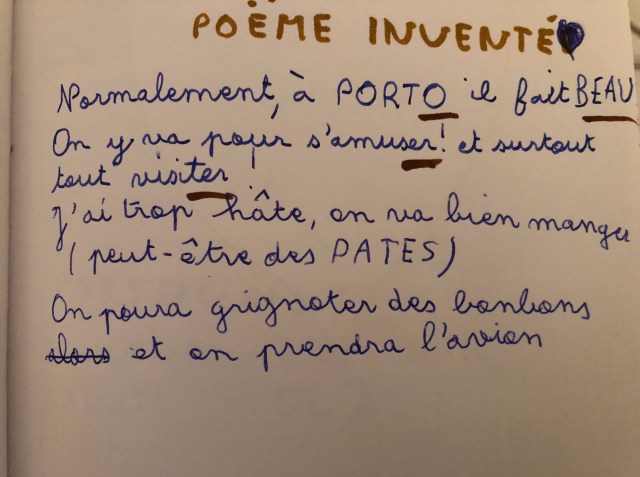 POËME INVENTÉ
Normalement, à PORTO il fait BEAU
On y va pour s'amuser! et surtout
tout visiter
J'ai trop hâte, on va bien manger
(peut-être des PATES)
On poura grignoter des bonbons
alors et on prendra l'avion